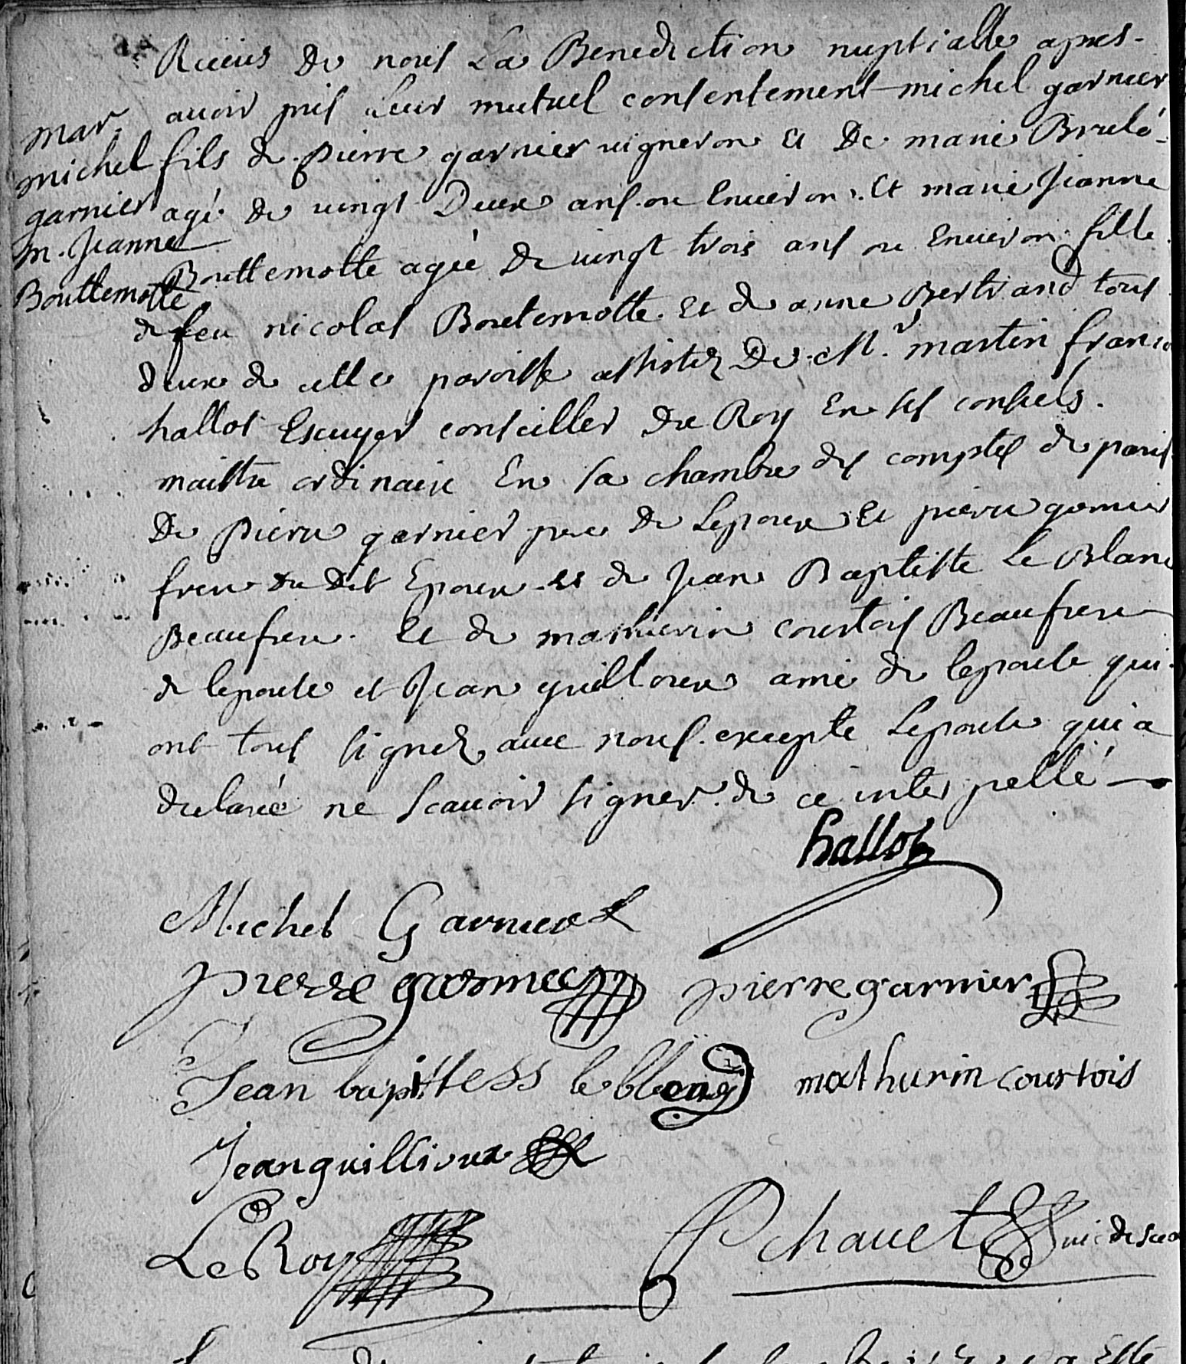 Mar.
michel
garnier
m. Jeanne
Bouttemotte
Receus de nous La Benediction nuptialle apres-
avoir pris leur mutuel consentement michel garnier
fils de pierre garnier vigneron et de marie Brulé
agé de vingt Deux ans ou Enuiron. Et marie Jeanne
Bouttemotte agée de vingt trois ans ou Enuiron fille
de feu nicolas Boutemotte Et de anne Bertrand tous
deux de cette paroisse assistez De Mr martin franco
hallot Escuyer conseiller du Roy En ses conseils.
maistre ordinaire En sa chambre des comptes de paris
De pierre garnier pere de Lepoux Et pierre garnier
frere du dit Epoux et de Jean Baptiste Le Blanc
Beaufrere. et de mathurin courtois Beaufrere
de lepoute et Jean guilloux ami de lepoute qui
ont tous signez avec nous. excepte Lepoute qui a
declarée ne scauoir signer. de ce interpellé
hallot
Michel Garnier
pierre garnier pierre garnier
Jean baptitess leblang mathurin courtois
Jean guillioux
Le Roy P chauet vic de